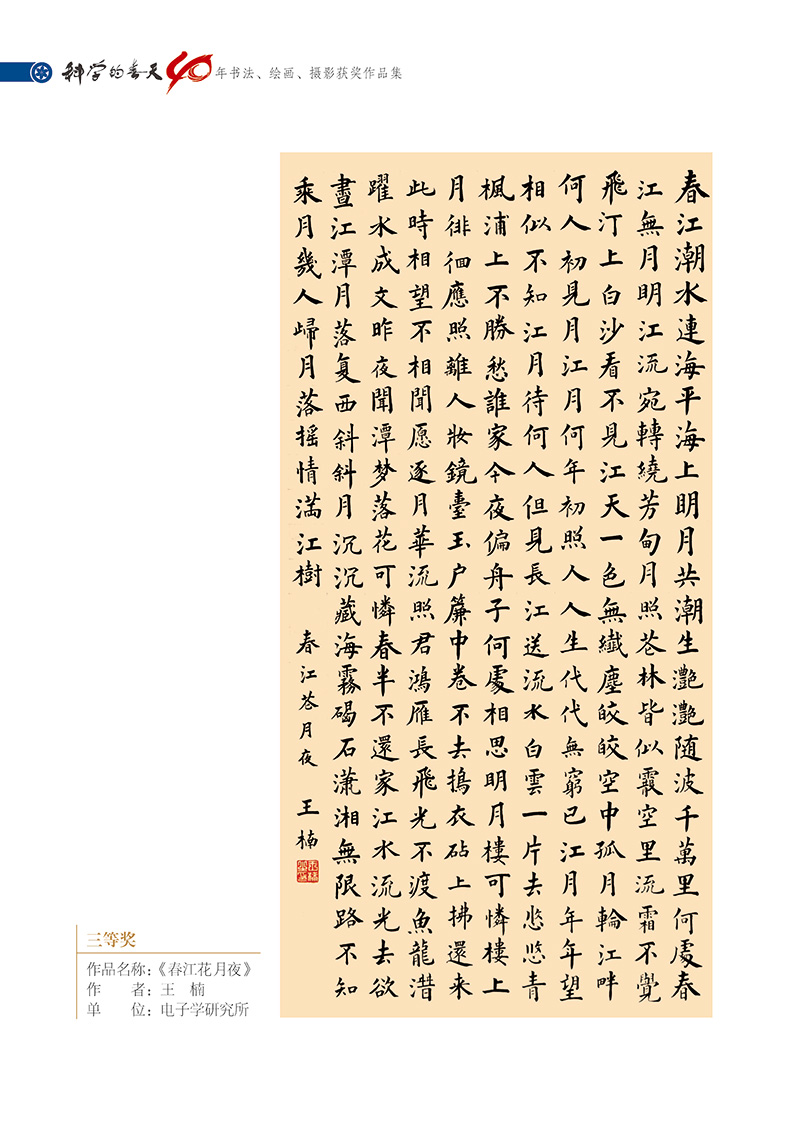 科学的春天40年书法、绘画、摄影获奖作品集
春江潮水連海平海上明月共潮生灔灔随波千萬里何處春
江無月明江流宛轉繞芳甸月照芲林皆似霰空里流霜不覺
飛汀上白沙看不見江天一色無纖塵皎皎空中孤月輪江畔
何人初見月江月何年初照人人生代代無窮已江月年年望
相似不知江月待何人但見長江送流水白雲一片去悠悠青
楓浦上不勝愁誰家今夜偏舟子何處相思明月樓可憐樓上
月徘徊應照離人妝鏡臺玉户簾中卷不去搗衣砧上拂還来
此時相望不相聞愿逐月華流照君鴻雁長飛光不渡魚龍潜
躍水成文昨夜聞潭梦落花可憐春半不還家江水流光去欲
盡江潭月落复西斜斜月沉沉藏海霧碣石潇湘無限路不知
乘月幾人歸月落摇情満江樹 春江芲月夜 王楠
三等奖
作品名称:《春江花月夜》
作 者: 王 楠
单 位: 电子学研究所